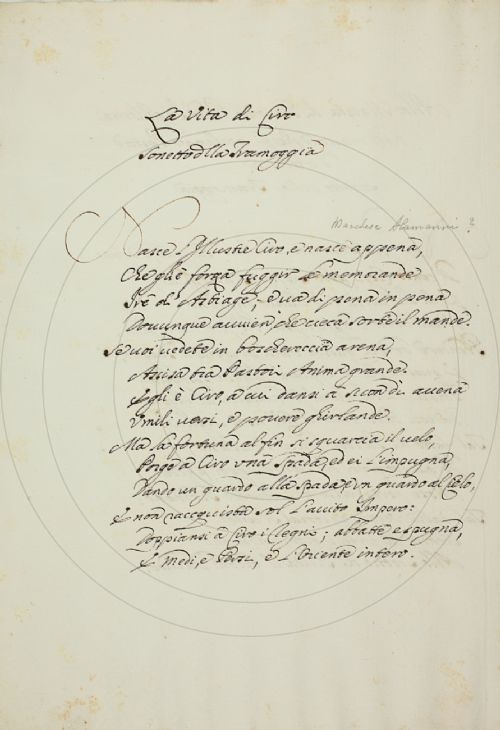 La Vita di Ciro
Sonetto dlla Tramoggia
Marchese Alamanni ?
Nasce l'Illustre Ciro, e nasce appena,
Che gli è forza fuggir le memorande
Ire di Astiage; e và di pena in pena
Dovunque avvien, che cieca sorte il mande.
Se voi vedete in boschereccia arena,
Assisa tra Pastori Anima grande.
Egli è Ciro, à cui dansi a suon di avena
Umili versi, e povere ghirlande.
Ma la fortuna alfin si squarcia il velo,
Porge à Ciro una Spada, ed ei l'impugna,
Dando un guardo alla spada, e un guardo al Cielo,
E non raccquista sol l'avito Impero:
Doppiansi à Ciro i Regni; abbatte e spugna,
E Medi, e Persi, e l'Oriente intero.